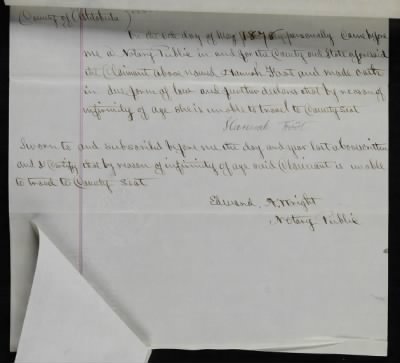 County of Ashtabula )
day of May 1878 personally came before
me a Notary Public in and for the County and State aforesaid
the Claimant above named Hannah Frost and made oath
in due form of law and further declares that by reason of
infirmity of age she is unable to travel to County Seat
Hannah Frost
Sworn to and subscribed before me the day and year last above written
and I certify that by reason of infirmity of age said Claimant is unable
to travel to County Seat
Edward A. Wright
Notary Public